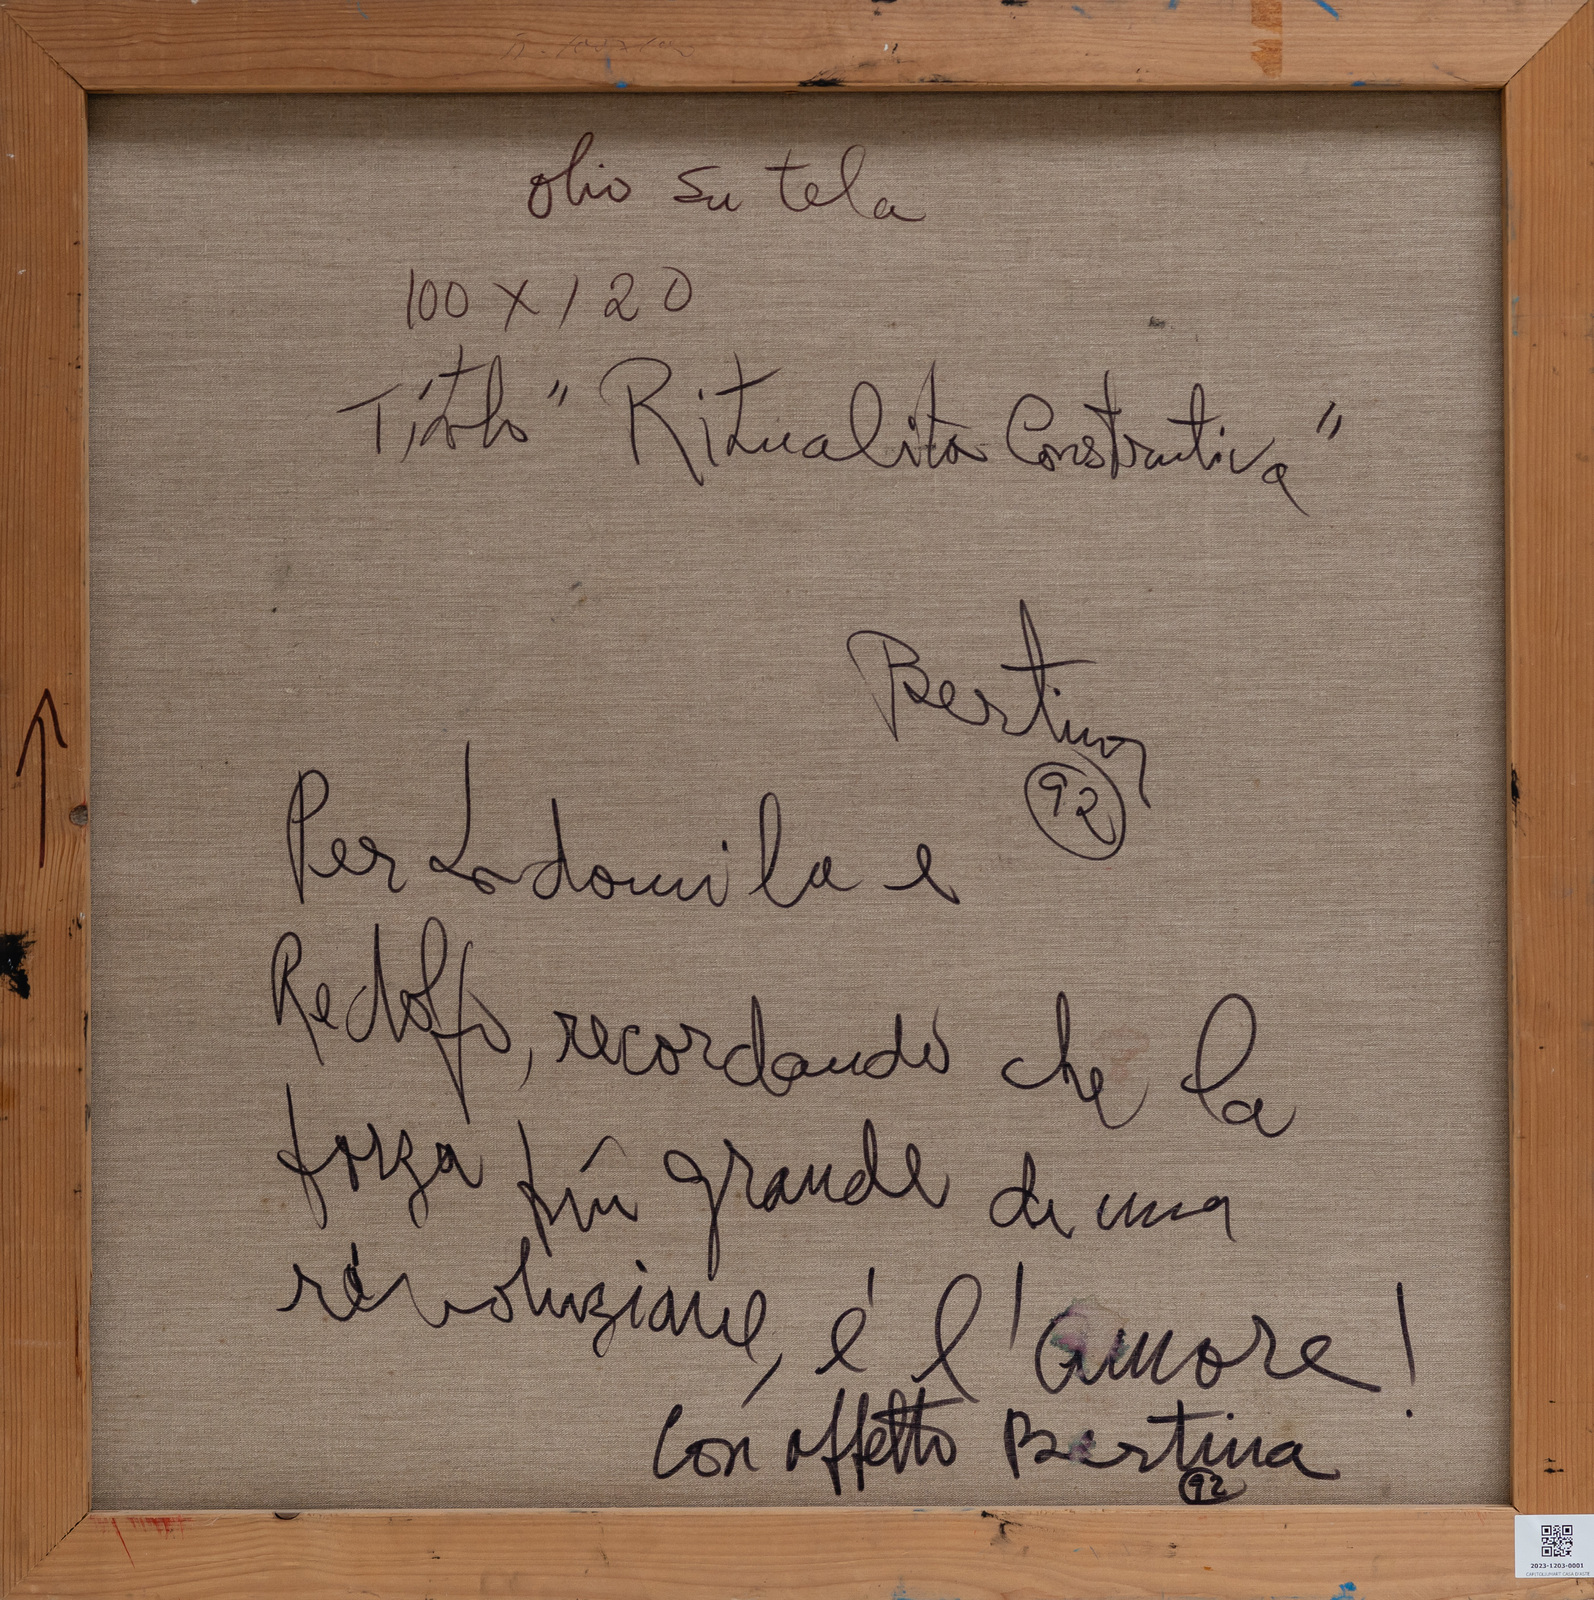 olio su tela
100 x 120
Titolo "Ritualita Constructiva"
Bertina
92
Per Lodomila e
Redolfo, recordando che la
forza più grande di una
révoluzione, é l'amore!
Con affetto Bertina
92
2023-1203-0001
CAPITOLIUMART CASA D'ASTE